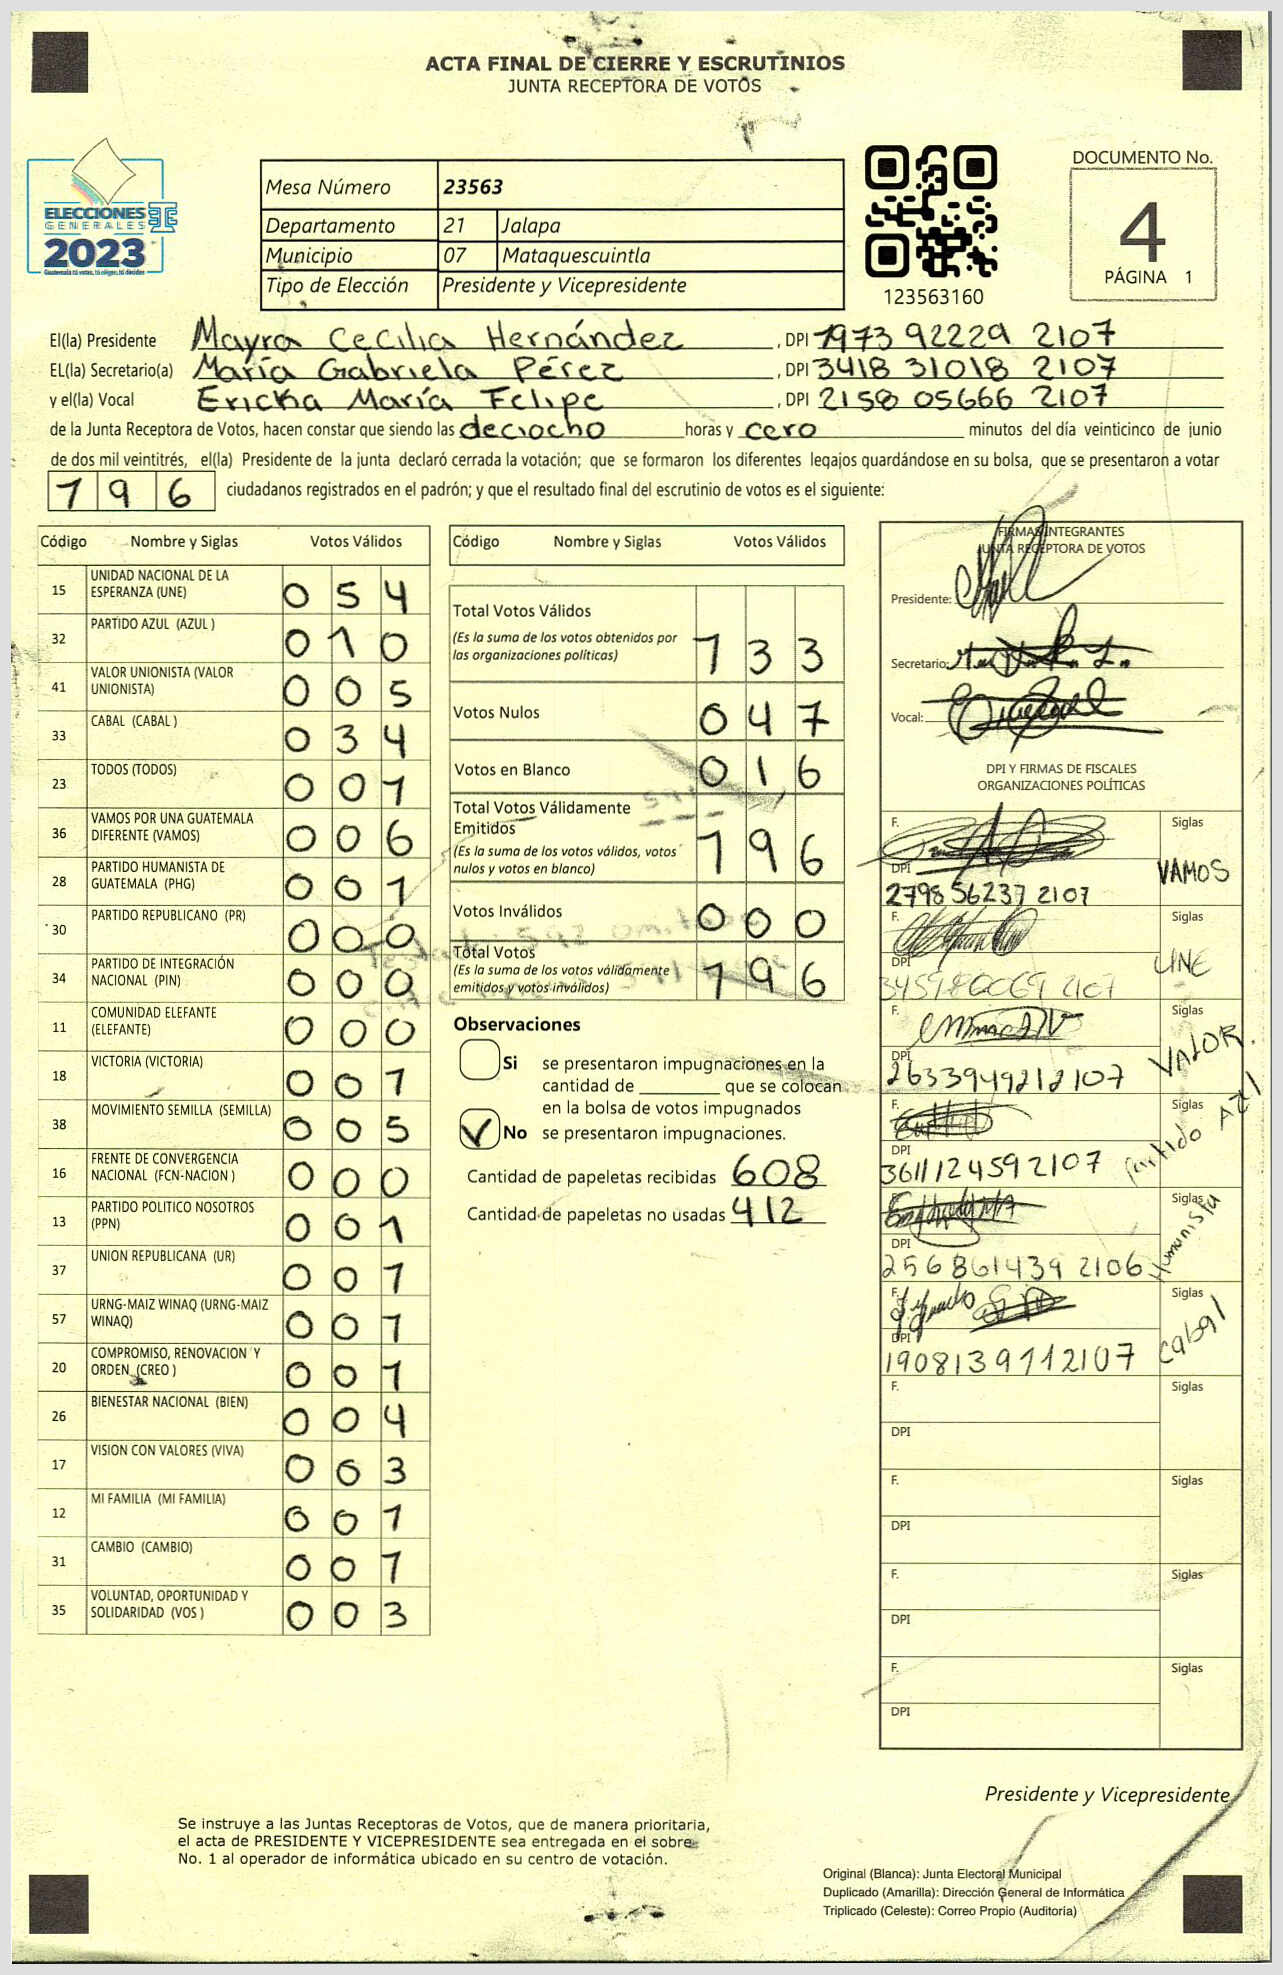 ACTA FINAL DE CIERRE Y ESCRUTINIOS
JUNTA RECEPTORA DE VOTOS
ELECCIONES
GENERALES
2023
Guatemala tú votas, tú eliges, tú decides
Mesa Número 23563
Departamento 21 Jalapa
Municipio 07 Mataquescuintla
Tipo de Elección Presidente y Vicepresidente
123563160
DOCUMENTO No.
4
PÁGINA 1
El(la) Presidente Mayra Cecilia Hernández, DPI 7973 92229 2107
EL(la) Secretario(a) María Gabriela Pérez, DPI 3418 31018 2107
y el(la) Vocal Ericka María Felipe, DPI 2158 05666 2107
de la Junta Receptora de Votos, hacen constar que siendo las deciocho horas y cero minutos del día veinticinco de junio
de dos mil veintitrés, el(la) Presidente de la junta declaró cerrada la votación; que se formaron los diferentes legajos guardándose en su bolsa, que se presentaron a votar
196 ciudadanos registrados en el padrón; y que el resultado final del escrutinio de votos es el siguiente:
Código Nombre y Siglas Votos Válidos
15 UNIDAD NACIONAL DE LA
ESPERANZA (UNE) 054
32 PARTIDO AZUL (AZUL ) 010
41 VALOR UNIONISTA (VALOR
UNIONISTA) 005
33 CABAL (CABAL ) 034
23 TODOS (TODOS) 001
36 VAMOS POR UNA GUATEMALA
DIFERENTE (VAMOS) 006
28 PARTIDO HUMANISTA DE
GUATEMALA (PHG) 001
30 PARTIDO REPUBLICANO (PR) 000
34 PARTIDO DE INTEGRACIÓN
NACIONAL (PIN) 000
11 COMUNIDAD ELEFANTE
(ELEFANTE) 000
18 VICTORIA (VICTORIA) 001
38 MOVIMIENTO SEMILLA (SEMILLA) 005
16 FRENTE DE CONVERGENCIA
NACIONAL (FCN-NACION ) 000
13 PARTIDO POLITICO NOSOTROS
(PPN) 001
37 UNION REPUBLICANA (UR) 001
57 URNG-MAIZ WINAQ (URNG-MAIZ
WINAQ) 001
20 COMPROMISO, RENOVACION Y
ORDEN (CREO ) 001
26 BIENESTAR NACIONAL (BIEN) 004
17 VISION CON VALORES (VIVA) 003
12 MI FAMILIA (MI FAMILIA) 001
31 CAMBIO (CAMBIO) 001
35 VOLUNTAD, OPORTUNIDAD Y
SOLIDARIDAD (VOS ) 003
Código Nombre y Siglas Votos Válidos
Total Votos Válidos 133
(Es la suma de los votos obtenidos por
las organizaciones políticas)
Votos Nulos 047
Votos en Blanco 016
Total Votos Válidamente
Emitidos 196
(Es la suma de los votos válidos, votos
nulos y votos en blanco)
Votos Inválidos 000
Total Votos 196
(Es la suma de los votos válidamente
emitidos y votos inválidos)
Observaciones
Si se presentaron impugnaciones en la
cantidad de ________ que se colocan
en la bolsa de votos impugnados
No se presentaron impugnaciones.
Cantidad de papeletas recibidas 608
Cantidad de papeletas no usadas 412
FIRMAS INTEGRANTES
JUNTA RECEPTORA DE VOTOS
Presidente:
Secretario:
Vocal:
DPI Y FIRMAS DE FISCALES
ORGANIZACIONES POLÍTICAS
F. Siglas
VAMOS
DPI
2798 56237 2107
F. Siglas
UNE
DPI
F. Siglas
VALOR.
DPI
2633949212107
F. Siglas
Partido AZUl
DPI
3611124592107
F. Siglas
Humanista
DPI
256861439 2106
F. Siglas
cabal
DPI
1908139112107
F. Siglas
DPI
F. Siglas
DPI
F. Siglas
DPI
F. Siglas
DPI
Presidente y Vicepresidente
Se instruye a las Juntas Receptoras de Votos, que de manera prioritaria,
el acta de PRESIDENTE Y VICEPRESIDENTE sea entregada en el sobre
No. 1 al operador de informática ubicado en su centro de votación.
Original (Blanca): Junta Electoral Municipal
Duplicado (Amarilla): Dirección General de Informática
Triplicado (Celeste): Correo Propio (Auditoría)